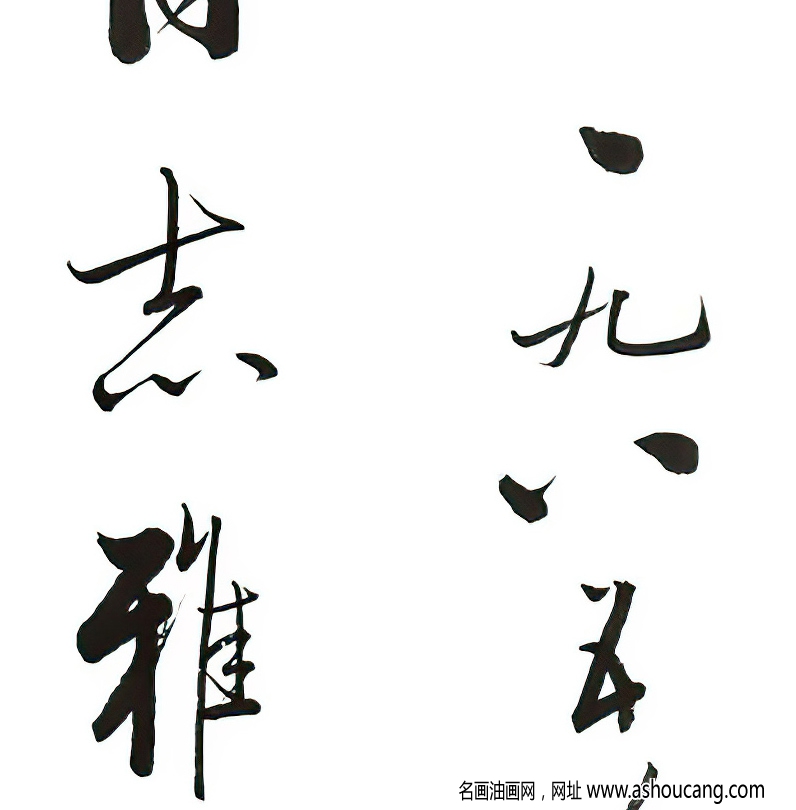 一九八五
志雅
名画油画网，网址 www.ashoucang.com